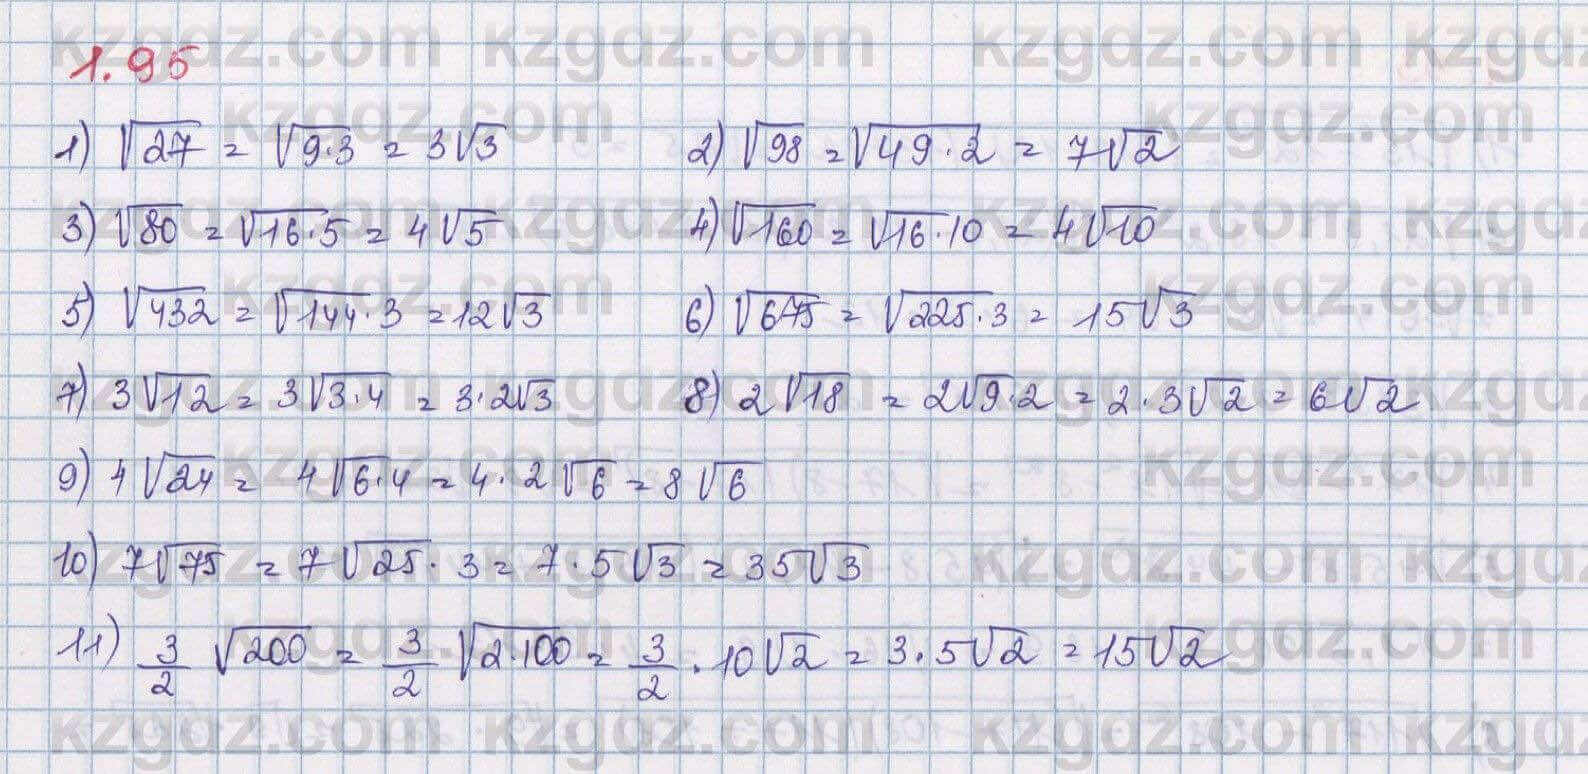 1.95
1) √27 = √9·3 = 3√3 2) √98 = √49·2 = 7√2
3) √80 = √16·5 = 4√5 4) √160 = √16·10 = 4√10
5) √432 = √144·3 = 12√3 6) √675 = √225·3 = 15√3
7) 3√12 = 3√3·4 = 3·2√3 8) 2√18 = 2√9·2 = 2·3√2 = 6√2
9) 4√24 = 4√6·4 = 4·2√6 = 8√6
10) 7√75 = 7√25·3 = 7·5√3 = 35√3
11) 3/2 √200 = 3/2 √2·100 = 3/2 · 10√2 = 3·5√2 = 15√2
kzgdz.com kzgdz.com kzgdz.com